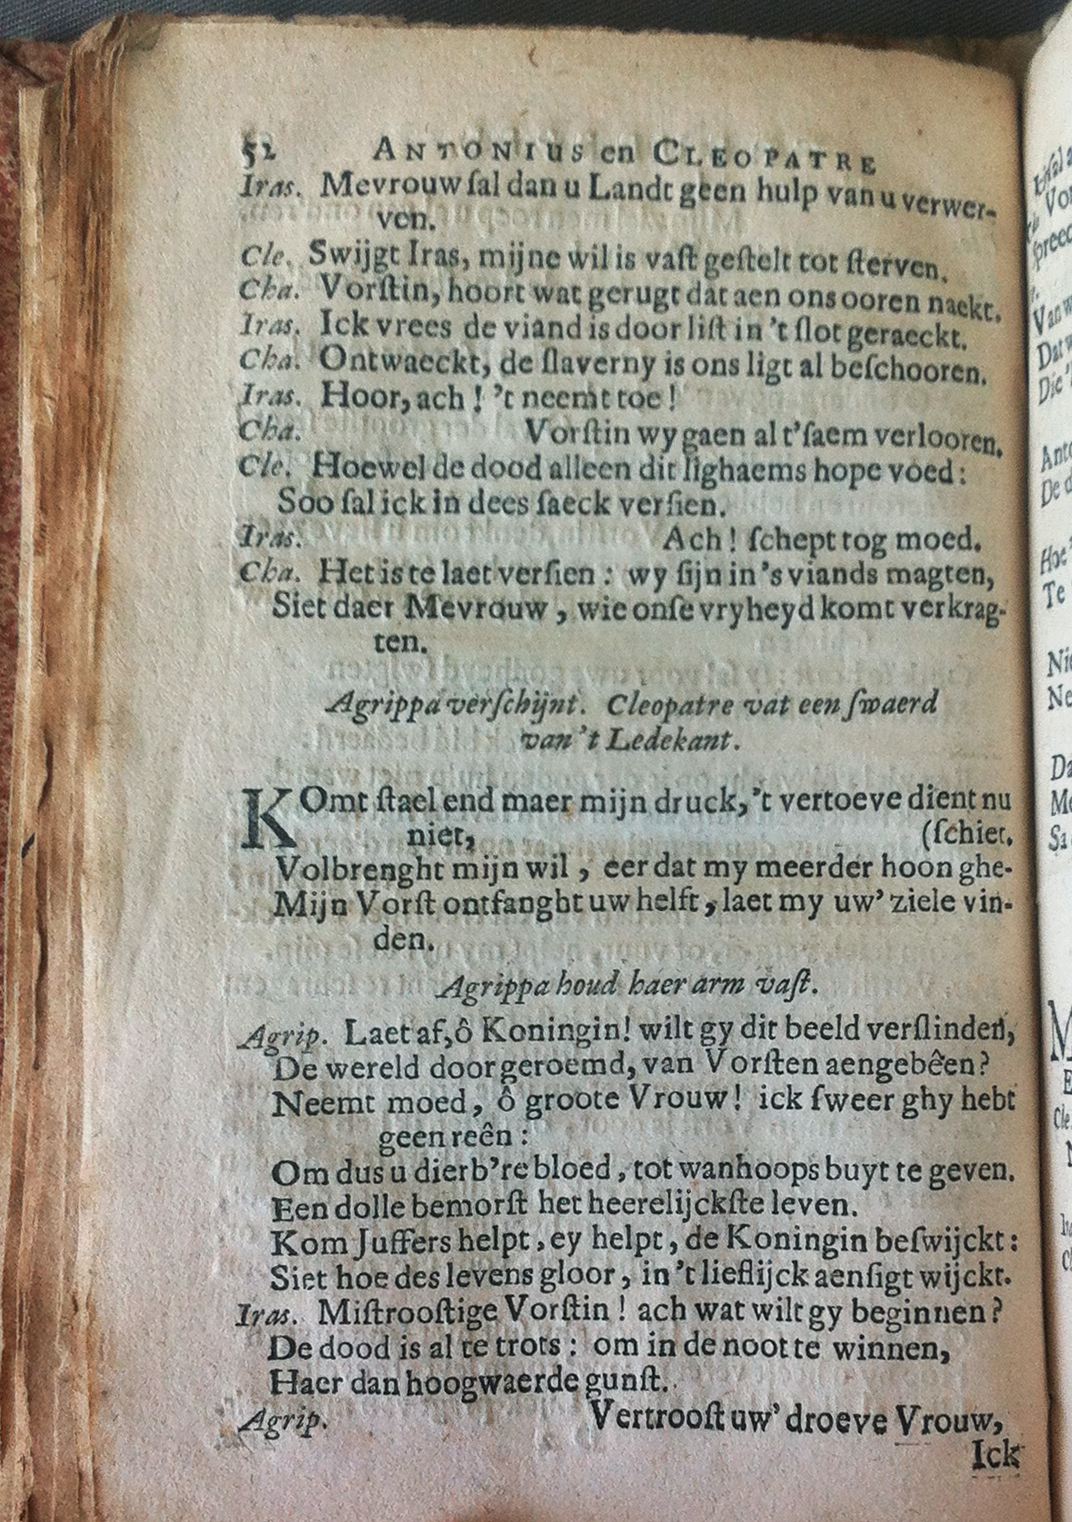 52 ANTONIUS en CLEOPATRE
Iras. Mevrouw ſal dan u Landt geen hulp van u verwer-
ven.
Cle. Swijgt Iras, mijne wil is vaſt geſtelt tot ſterven.
Cha. Vorſtin, hoort wat gerugt dat aen ons ooren naekt.
Iras. Ick vrees de viand is door liſt in 't ſlot geraeckt.
Cha. Ontwaeckt, de ſlaverny is ons ligt al beſchooren.
Iras. Hoor, ach! 't neemt toe!
Cha. Vorſtin wy gaen al t'ſaem verlooren.
Cle. Hoewel de dood alleen dit lighaems hope voed:
Soo ſal ick in dees ſaeck verſien.
Iras. Ach! ſchept tog moed.
Cha. Het is te laet verſien: wy ſijn in 's viands magten,
Siet daer Mevrouw, wie onſe vryheyd komt verkrag-
ten.
Agrippa verſchijnt. Cleopatre vat een ſwaerd
van 't Ledekant.
KOmt ſtael end maer mijn druck, 't vertoeve dient nu
niet, (ſchiet.
Volbrenght mijn wil, eer dat my meerder hoon ghe-
Mijn Vorſt ontfanght uw helft, laet my uw' ziele vin-
den.
Agrippa houd haer arm vaſt.
Agrip. Laet af, ô Koningin! wilt gy dit beeld verſlinden,
De wereld door geroemd, van Vorſten aengebêen?
Neemt moed, ô groote Vrouw! ick ſweer ghy hebt
geen reên:
Om dus u dierb're bloed, tot wanhoops buyt te geven.
Een dolle bemorſt het heerelijckſte leven.
Kom Juffers helpt, ey helpt, de Koningin beſwijckt:
Siet hoe des levens gloor, in 't lieflijck aenſigt wijckt.
Iras. Miſtrooſtige Vorſtin! ach wat wilt gy beginnen?
De dood is al te trots: om in de noot te winnen,
Haer dan hoogwaerde gunſt.
Agrip. Vertrooſt uw' droeve Vrouw,
Ick